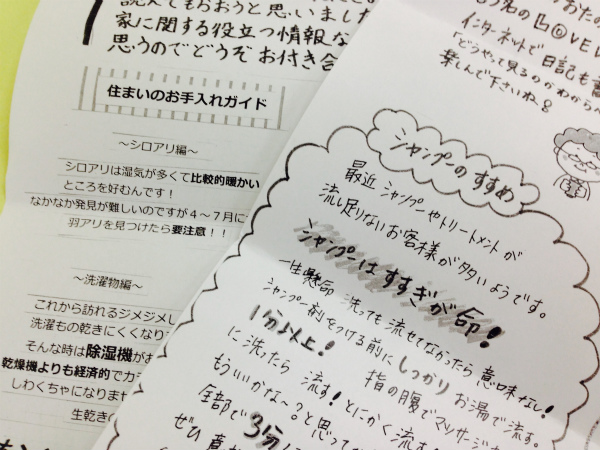 読んでもらおうと思いました
家に関する役立つ情報な
思うのでどうぞお付き合
住まいのお手入れガイド
～シロアリ編～
シロアリは湿気が多くて比較的暖かい
ところを好むんです！
なかなか発見が難しいのですが４～７月に
羽アリを見つけたら要注意！！
～洗濯物編～
これから訪れるジメジメし
洗濯もの乾きにくくなり
そんな時は除湿機がお
乾燥機よりも経済的でカラ
しわくちゃになりませ
生乾きの
インターネットで日記も書
「どうやって見るのかわからへ
楽しんで下さいね
シャンプーのすすめ
最近シャンプーやトリートメントが
流し足りないお客様が多いようです。
シャンプーはすすぎが命！
一生懸命洗っても流せてなかったら意味なし！
シャンプー剤をつける前にしっかりお湯で流す。
1分以上！ 指の腹でマッサージ
に洗ったら流す！とにかく流す
もういいかな～？と思って
全部で3分
ぜひ意